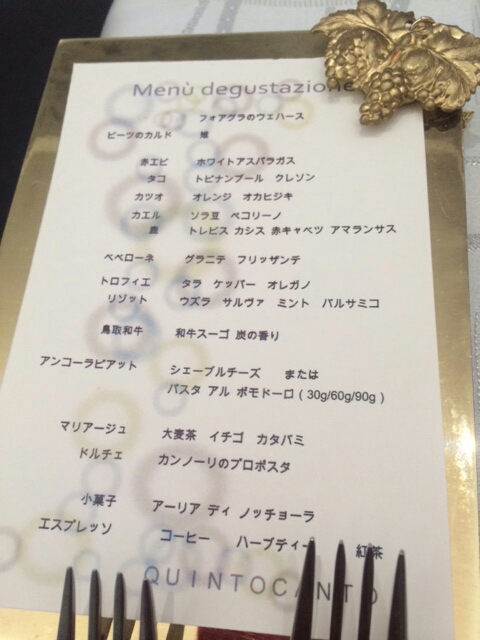 Menù degustazione
フォアグラのウェハース
ビーツのカルド 燻
赤エビ ホワイトアスパラガス
タコ トピナンブール クレソン
カツオ オレンジ オカヒジキ
カエル ソラ豆 ペコリーノ
鹿 トレビス カシス 赤キャベツ アマランサス
ペペローネ グラニテ フリッザンテ
トロフィエ タラ ケッパー オレガノ
リゾット ウズラ サルヴァ ミント バルサミコ
鳥取和牛 和牛スーゴ 炭の香り
アンコーラピアット シェーブルチーズ または
パスタ アル ポモドーロ ( 30g/60g/90g )
マリアージュ 大麦茶 イチゴ カタバミ
ドルチェ カンノーリのプロポスタ
小菓子 アーリア ディ ノッチョーラ
エスプレッソ コーヒー ハーブティー 紅茶
QUINTOCANTO